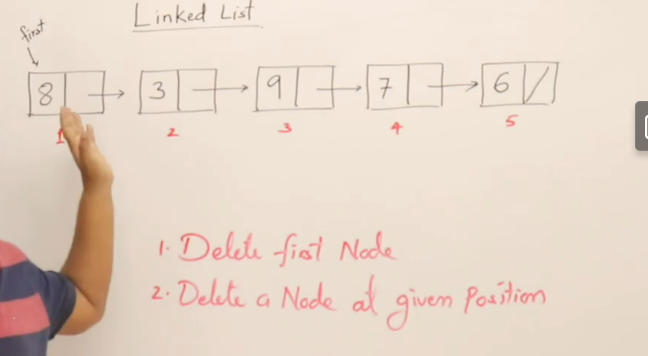 Linked List
first
8 3 9 7 6
1 2 3 4 5
1. Delete first Node
2. Delete a Node at given Position